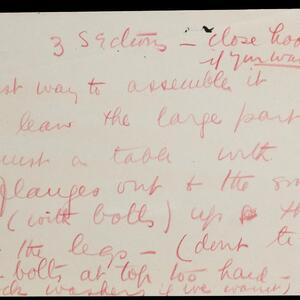 3 Sections — close hoo
if you wan
st way to assemble it
lean the large part
inst a table with
flanges out & the sm
(with bolts) up the
the legs — (dont t
bolts at top too hard —
ck washers if we want)